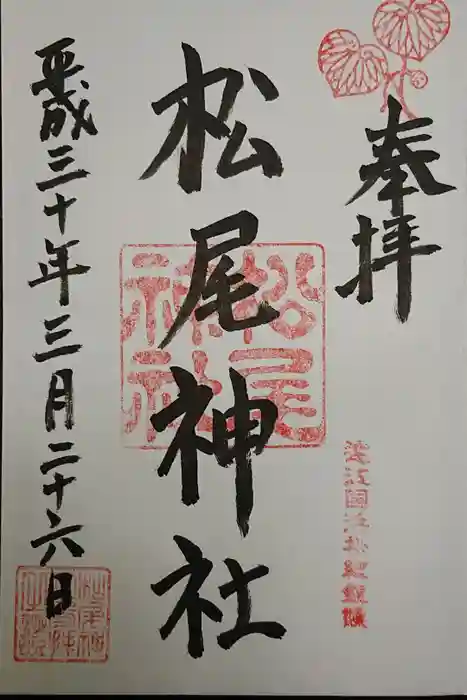 奉拝
松尾神社
松尾神社
平成三十年三月二十六日